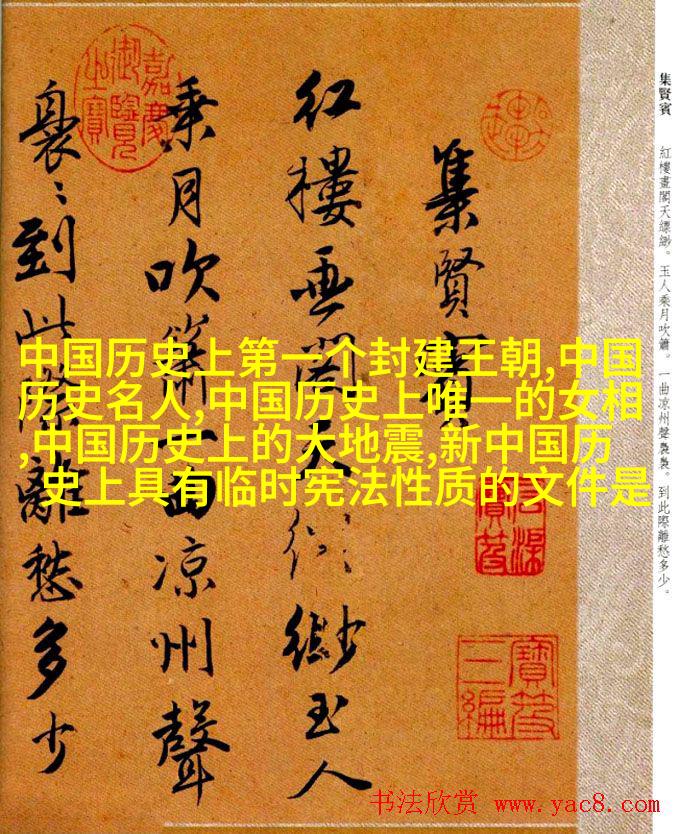 集賢賓　紅樓畫閣天縹緲。玉人乘月吹簫。一曲凉州聲裊裊。到此際離愁多少。
集賢賓
红樓畫阁天缥缈玉人
乘月吹簫一曲凉州聲
裊〻到此際離愁多少
嘉慶御覽之寶
石渠寶笈
寶笈三編
中国历史上第一个封建王朝,中国
历史名人,中国历史上唯一的女相
,中国历史上的大地震,新中国历
史上具有临时宪法性质的文件是
书法欣赏 www.yac8.com